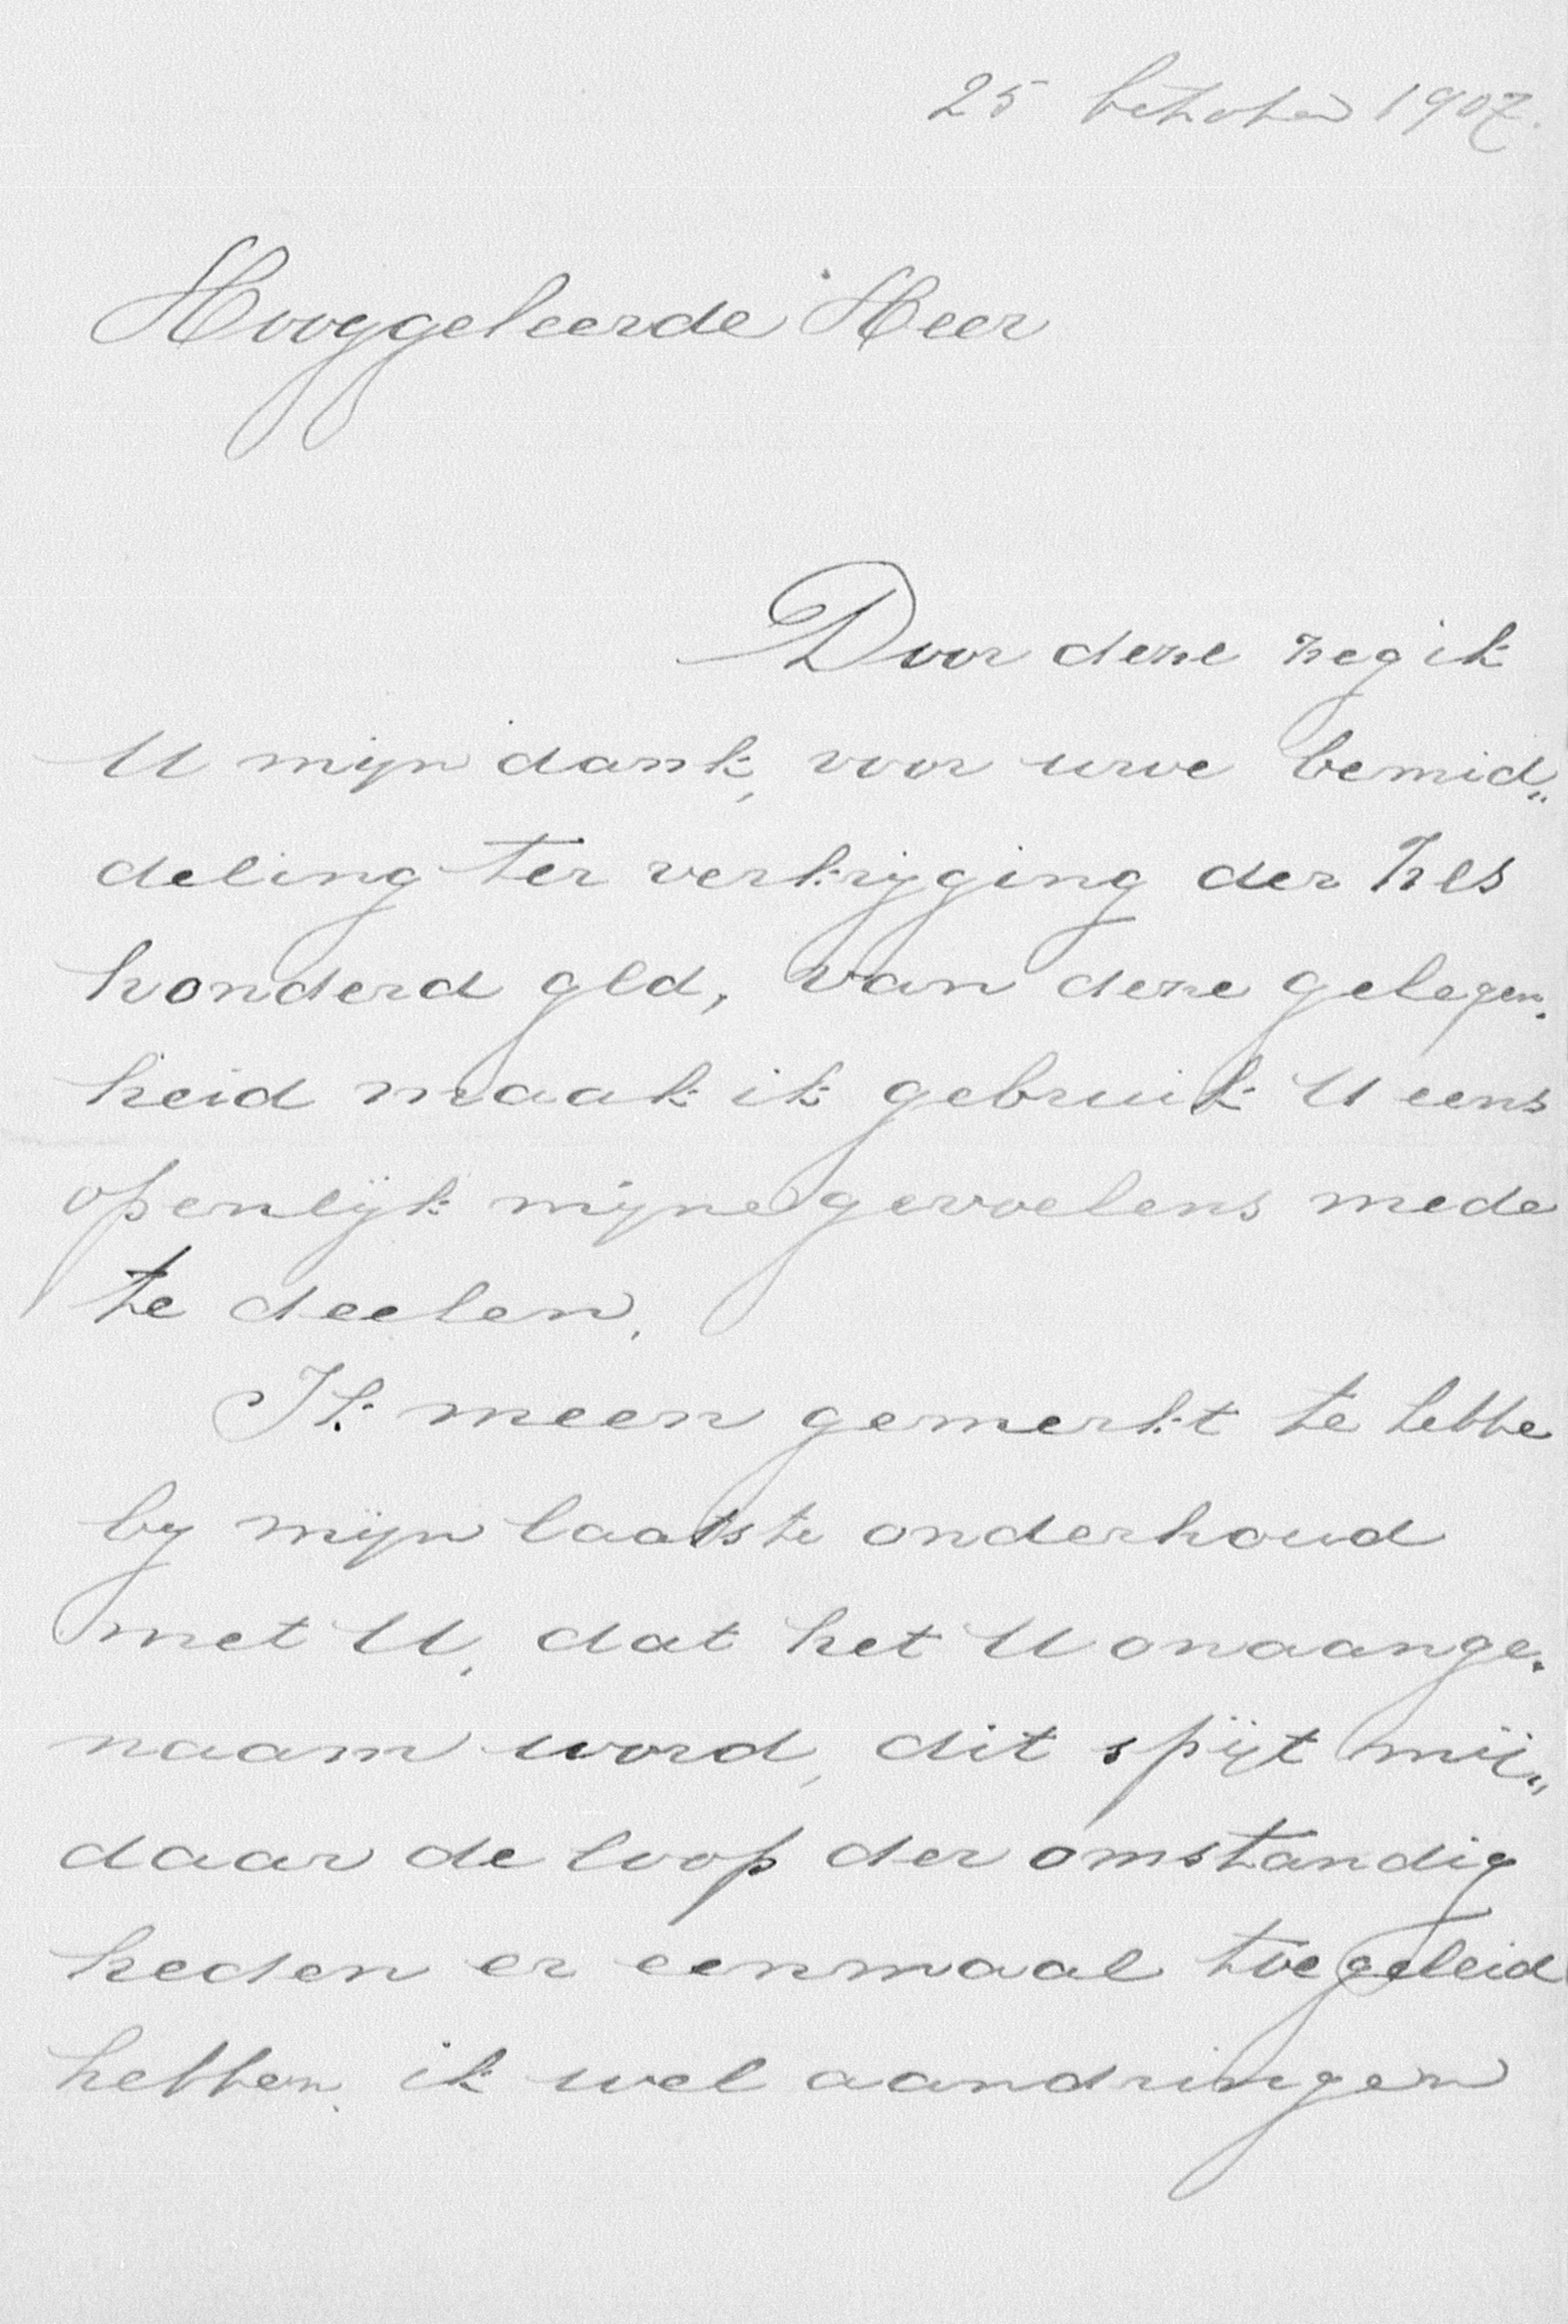 25 October 1907.
Hooggeleerde Heer
Door deze zeg ik
U mijn dank, voor uwe bemid„
deling ter verkrijging der zes
honderd gld, van deze gelegen„
heid maak ik gebruik U eens
openlijk mijne gevoelens mede
te deelen.
Ik meen gemerkt te hebbe
by mijn laatste onderhoud
met U, dat het U onaange„
naam word, dit spijt mij„
daar de loop der omstandig
heden er eenmaal toe geleid
hebben, ik wel aandringen